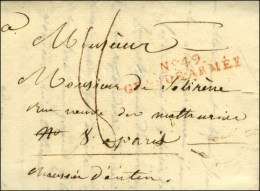 a
Monsieur
No. 49
GRANDE ARMÉE
Monsieur de
rue neuve des mathurins
No 8. a paris
chaussée d'antin.